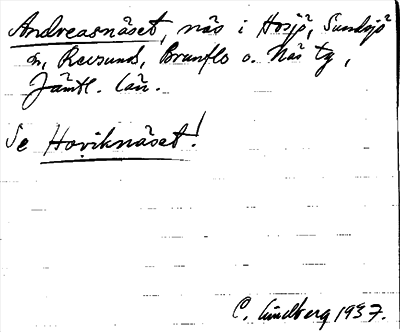 Andreasnäset, näs i Hosjö, Sundsjö
sn, Revsunds, Brunflo o. Näs tg,
Jämtl. län.
Se Hoviknäset!
C. Lindberg 1937.